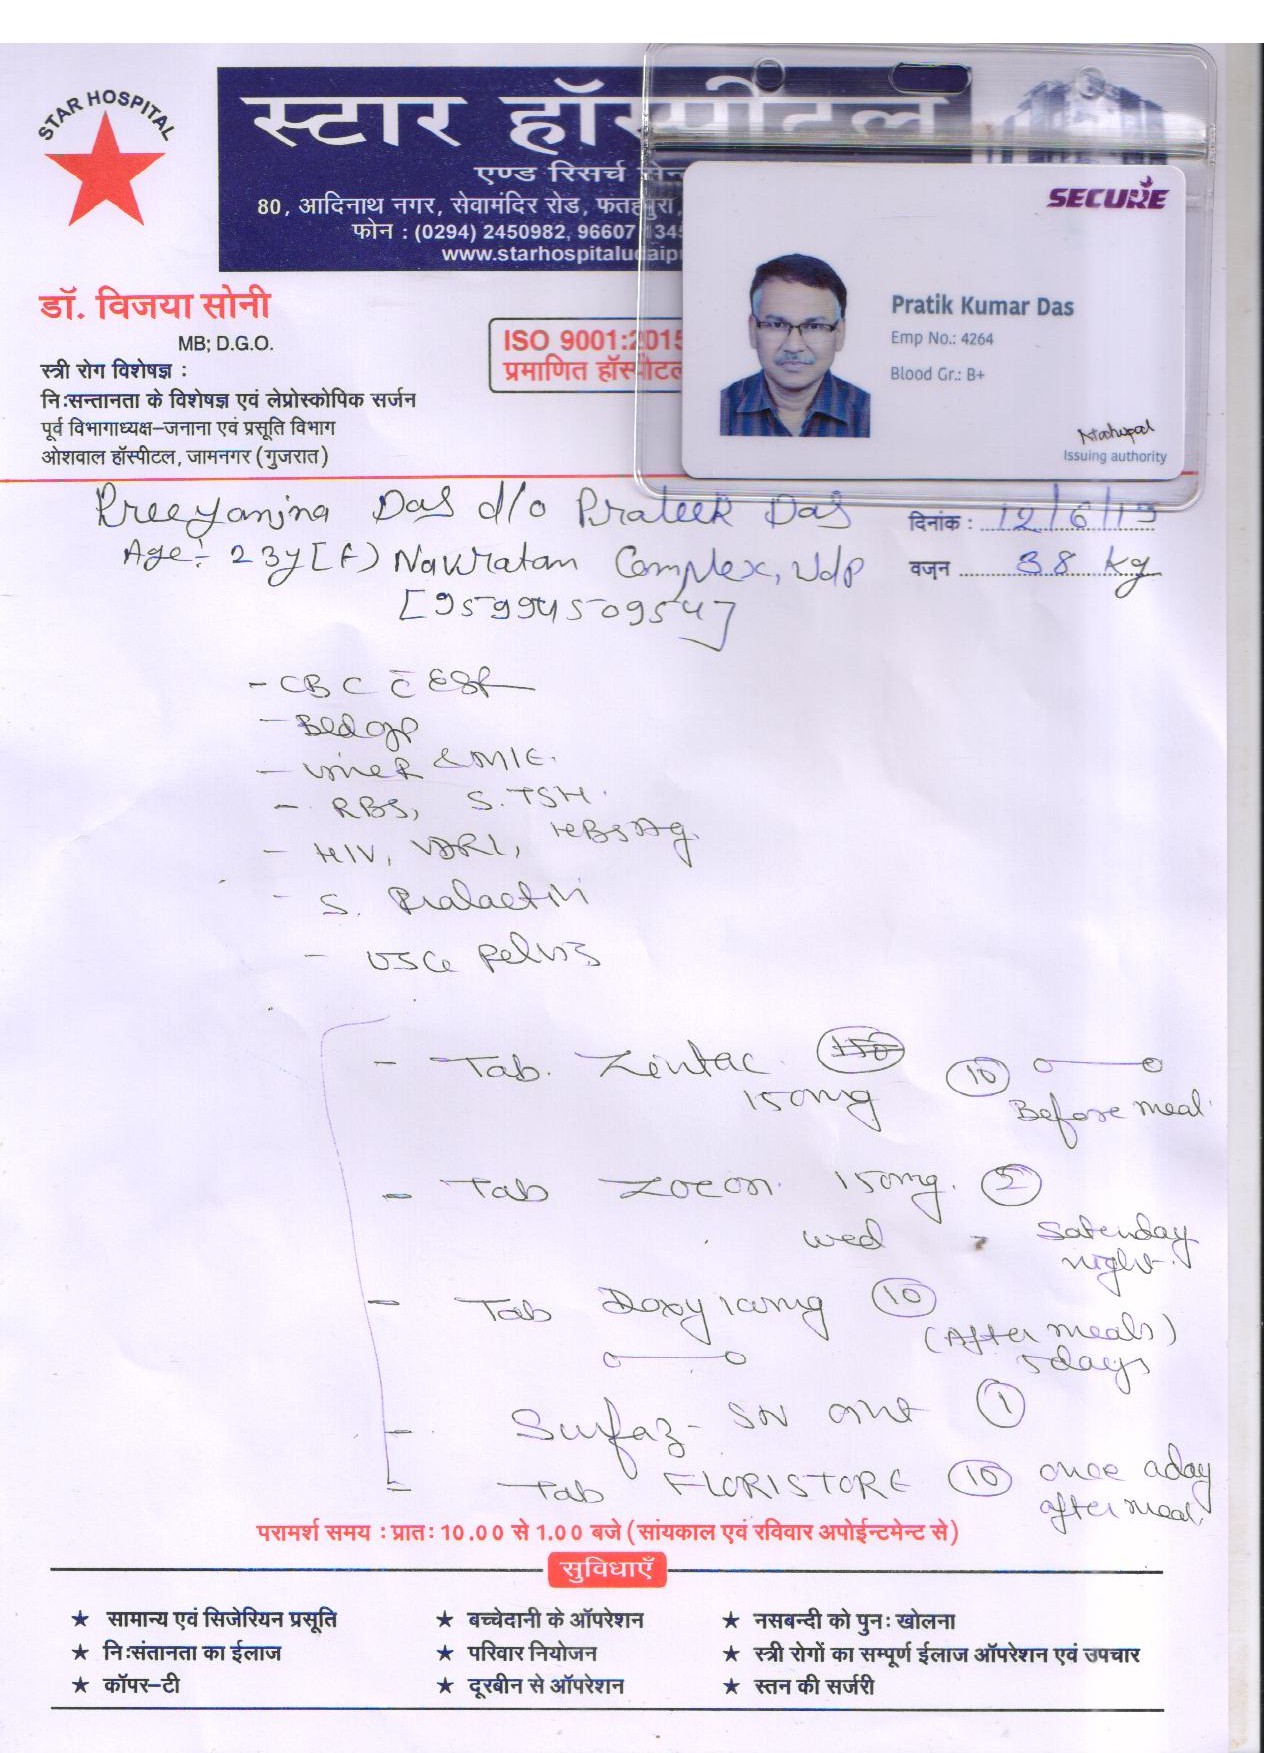 STAR HOSPITAL
स्टार हॉस्पीटल
एण्ड रिसर्च सेन
80, आदिनाथ नगर, सेवामंदिर रोड, फतहपुरा,
फोन : (0294) 2450982, 96607 1345
www.starhospitaludaipu
SECURE
Pratik Kumar Das
Emp No.: 4264
Blood Gr.: B+
Issuing authority
डॉ. विजया सोनी
MB; D.G.O.
स्त्री रोग विशेषज्ञ :
निःसन्तानता के विशेषज्ञ एवं लेप्रोस्कोपिक सर्जन
पूर्व विभागाध्यक्ष–जनाना एवं प्रसूति विभाग
ओशवाल हॉस्पीटल, जामनगर (गुजरात)
ISO 9001:2015
प्रमाणित हॉस्पीटल
Preeyanjna Das d/o Prateek Das
दिनांक : 12/6/19
Age:- 23y [F) Navratan Complex, Udp
वजन 38 kg
[9599450954]
- CBC c̄ ESR
- Bld gp
- Urine R & M/E.
- RBS, S. TSH.
- HIV, VDRL, HBsAg.
- S. Prolactin
- USG Pelvis
- Tab. Zintac 150mg (10) Before meal
- Tab Zocon 150mg. (2)
wed , Saturday night.
- Tab Doxy 100mg (10) (After meals)
5 days
- Surfaz-SN oint (1)
- Tab FLORISTORE (10) once a day
after meal.
परामर्श समय : प्रातः 10.00 से 1.00 बजे (सांयकाल एवं रविवार अपोईन्टमेन्ट से)
सुविधाएँ
★ सामान्य एवं सिजेरियन प्रसूति ★ बच्चेदानी के ऑपरेशन ★ नसबन्दी को पुनः खोलना
★ निःसंतानता का ईलाज ★ परिवार नियोजन ★ स्त्री रोगों का सम्पूर्ण ईलाज ऑपरेशन एवं उपचार
★ कॉपर–टी ★ दूरबीन से ऑपरेशन ★ स्तन की सर्जरी